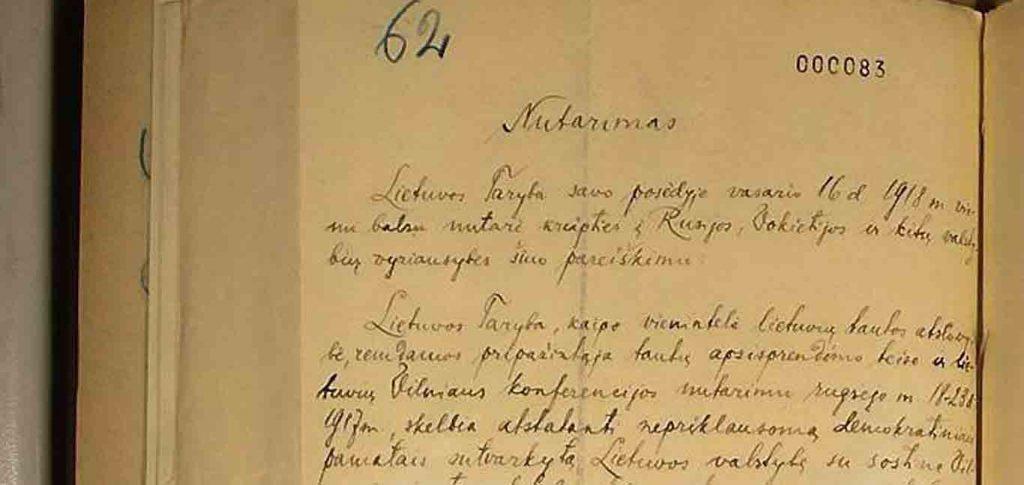 62
000083
Nutarimas
Lietuvos Taryba savo posėdyje vasario 16 d 1918 m vie-
nu balsu nutarė kreipties į Rusijos, Vokietijos ir kitų valsty
bių vyriausybes šiuo pareiškimu:
Lietuvos Taryba, kaipo vienintelė lietuvių tautos atstovy-
bė, remdamos pripažintąja tautų apsisprendimo teise ir lie-
tuvių Vilniaus konferencijos nutarimu rugsėjo m 18-23 d
1917 m, skelbia atstatanti nepriklausomą demokratiniais
pamatais sutvarkytą Lietuvos valstybę su sostine Vil-